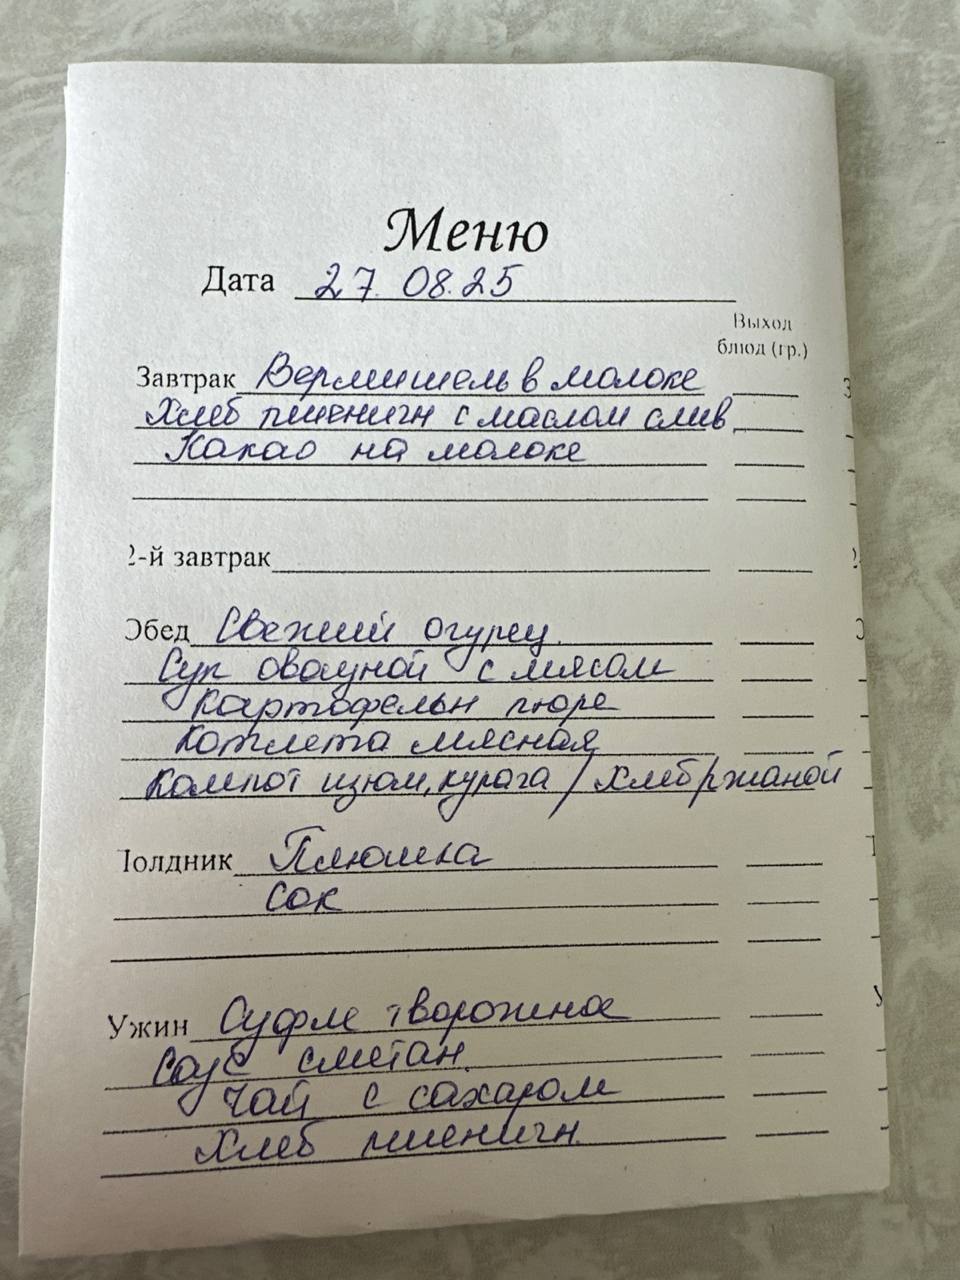 Меню
Дата 27.08.25
Выход
блюд (гр.)
Завтрак Вермишель в молоке
Хлеб пшеничн с маслом слив
Какао на молоке
2-й завтрак
Обед Свежий огурец
Суп овощной с мясом
Картофельн пюре
Котлета мясная
Компот изюм, курага / хлеб ржаной
Полдник Плюшка
Сок
Ужин Суфле творожное
Соус сметан.
Чай с сахаром
Хлеб пшеничн.